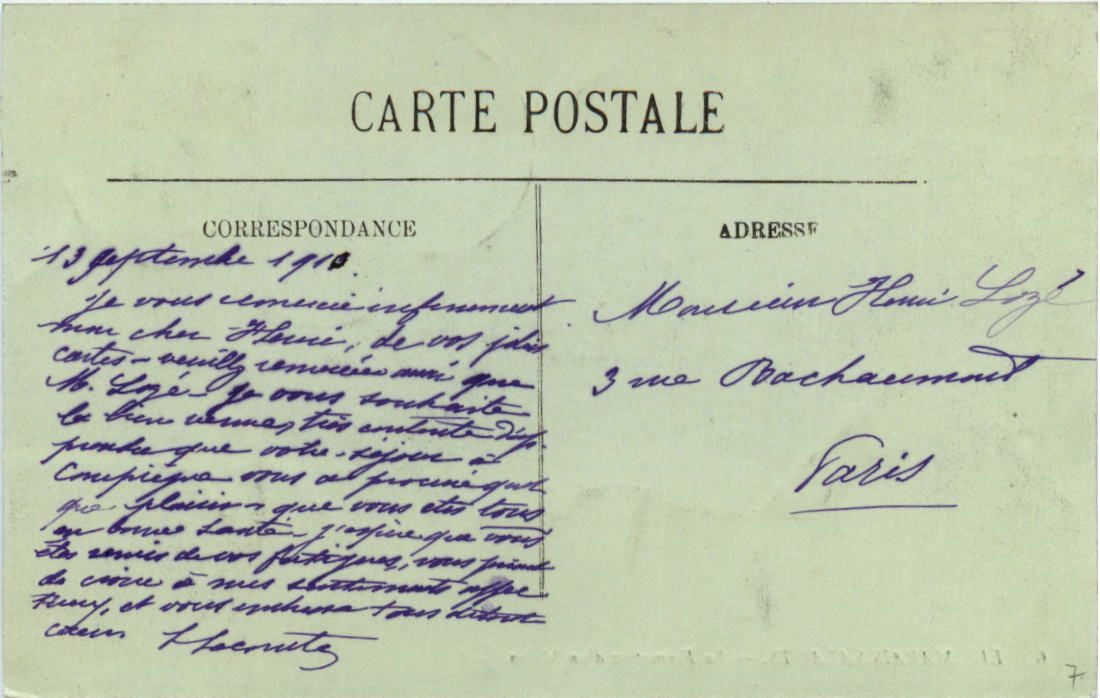 CARTE POSTALE
CORRESPONDANCE
13 Septembre 191
je vous remercie infiniment
mon cher Henri, de vos jolies
cartes - veuillez remercier aussi que
M. Lozé - Je vous souhaite
la bien venue, très contente d'ap-
prendre que votre séjour à
Compiègne vous a procuré quel
que plaisir que vous etes tous
en bonne santé - j'espère que vous
êtes remis de vos fatigues, vous priant
de croire à mes sentiments affec
tueux, et vous embrasse tous de tout
coeur
ADRESSE
Monsieur Henri Lozé
3 rue Bachaumont
Paris
7